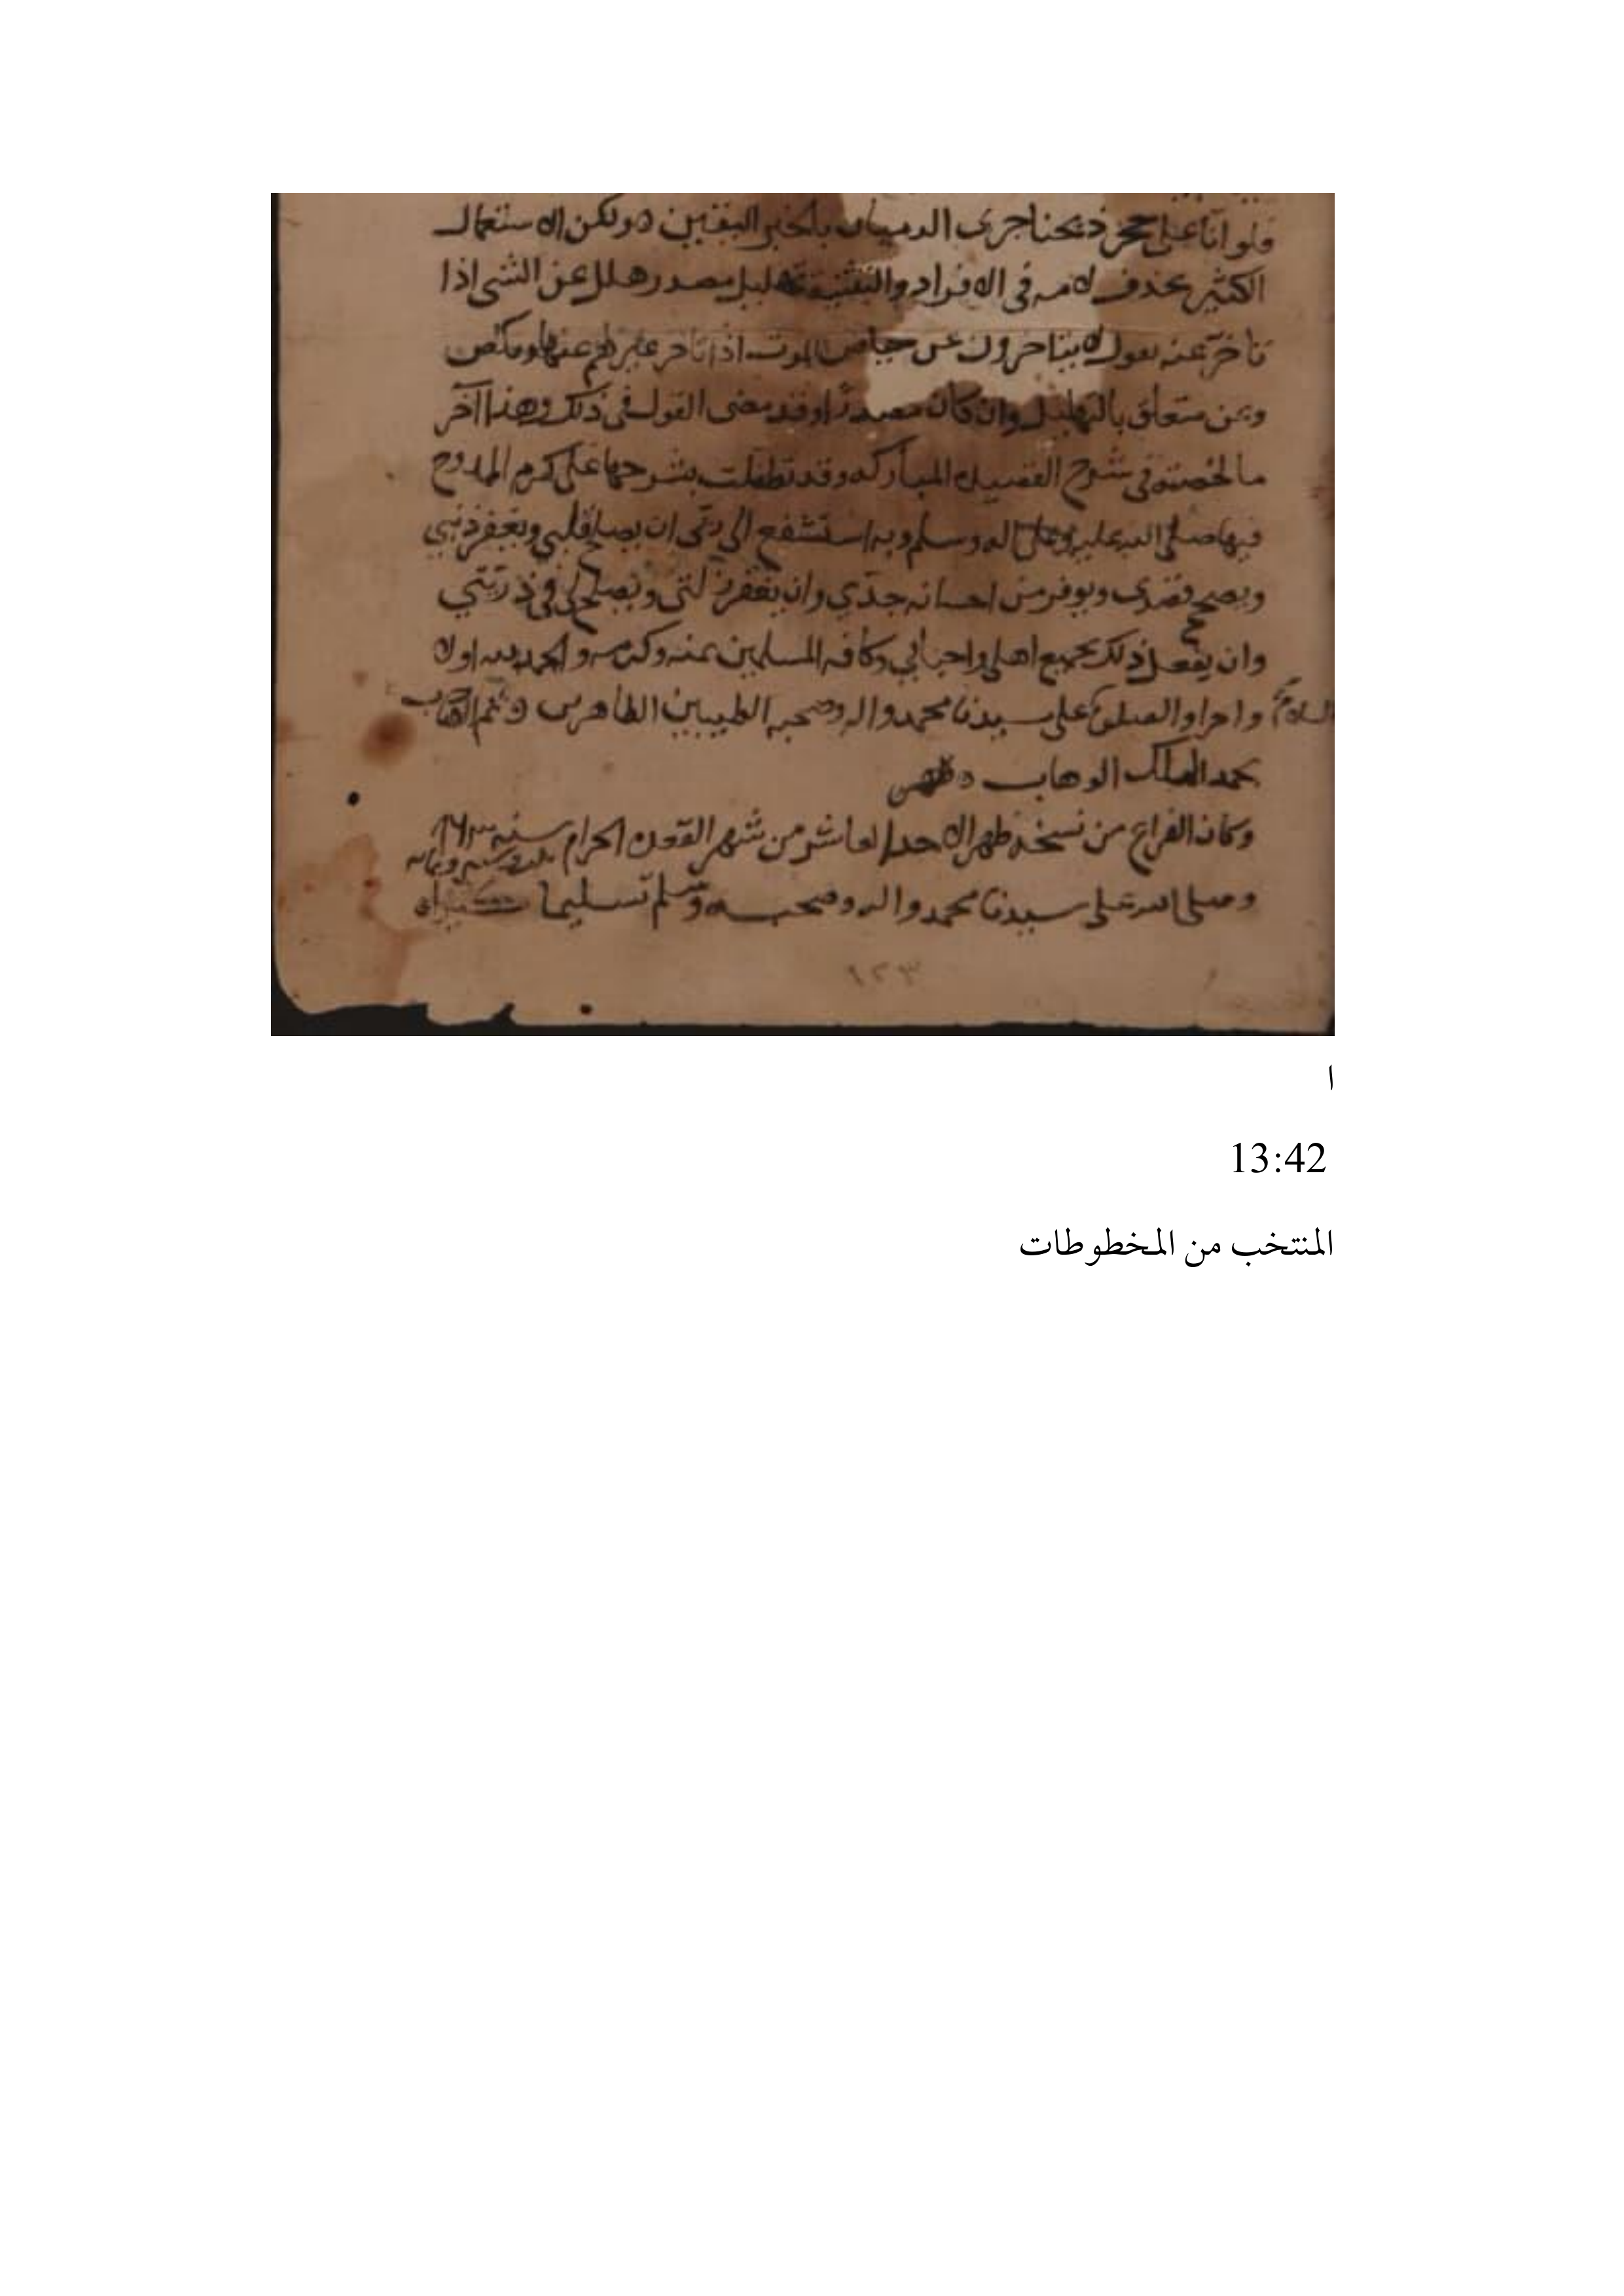 فلو انا على حجر ذبحنا جرى الدميان بالخبر اليقين ه ولكن الاستعمال
الكثير بحذف لامه في الافراد والتثنية تهليل مصدر هلل عن الشي اذا
تاخر عنه يقول لا يتاخرون عن حياض الموت اذا تاخر غيرهم عنها ونكص
وعن متعلق بالتهليل وان كان مصدرًا وقد مضى القول في ذلك وهذا آخر
ما لخصته في شرح القصيده المباركه وقد تطفلت بشرحها على كرم الممدوح
فيها صلى الله عليه وعلى اله وسلم وبه استشفع الى ربي ان يصلح قلبي ويغفر ذنبي
ويصحح قصدي ويوفر من احسانه جدي وان يغفر زلتي ويصلح لي في ذريتي
وان يفعل ذلك بجميع اهلي واحبابي وكافه المسلمين بمنه وكرمه والحمد لله اولا
واخرا والصلوة والسلام على سيدنا محمد واله وصحبه الطيبين الطاهرين وتم الكتاب
بحمد الملك الوهاب
وكان الفراغ من نسخه ظهر الاحد العاشر من شهر القعدة الحرام سنه
وصلى الله على سيدنا محمد واله وصحبه وسلم تسليما كثيرا
١٢٣
ا
13:42
المنتخب من المخطوطات